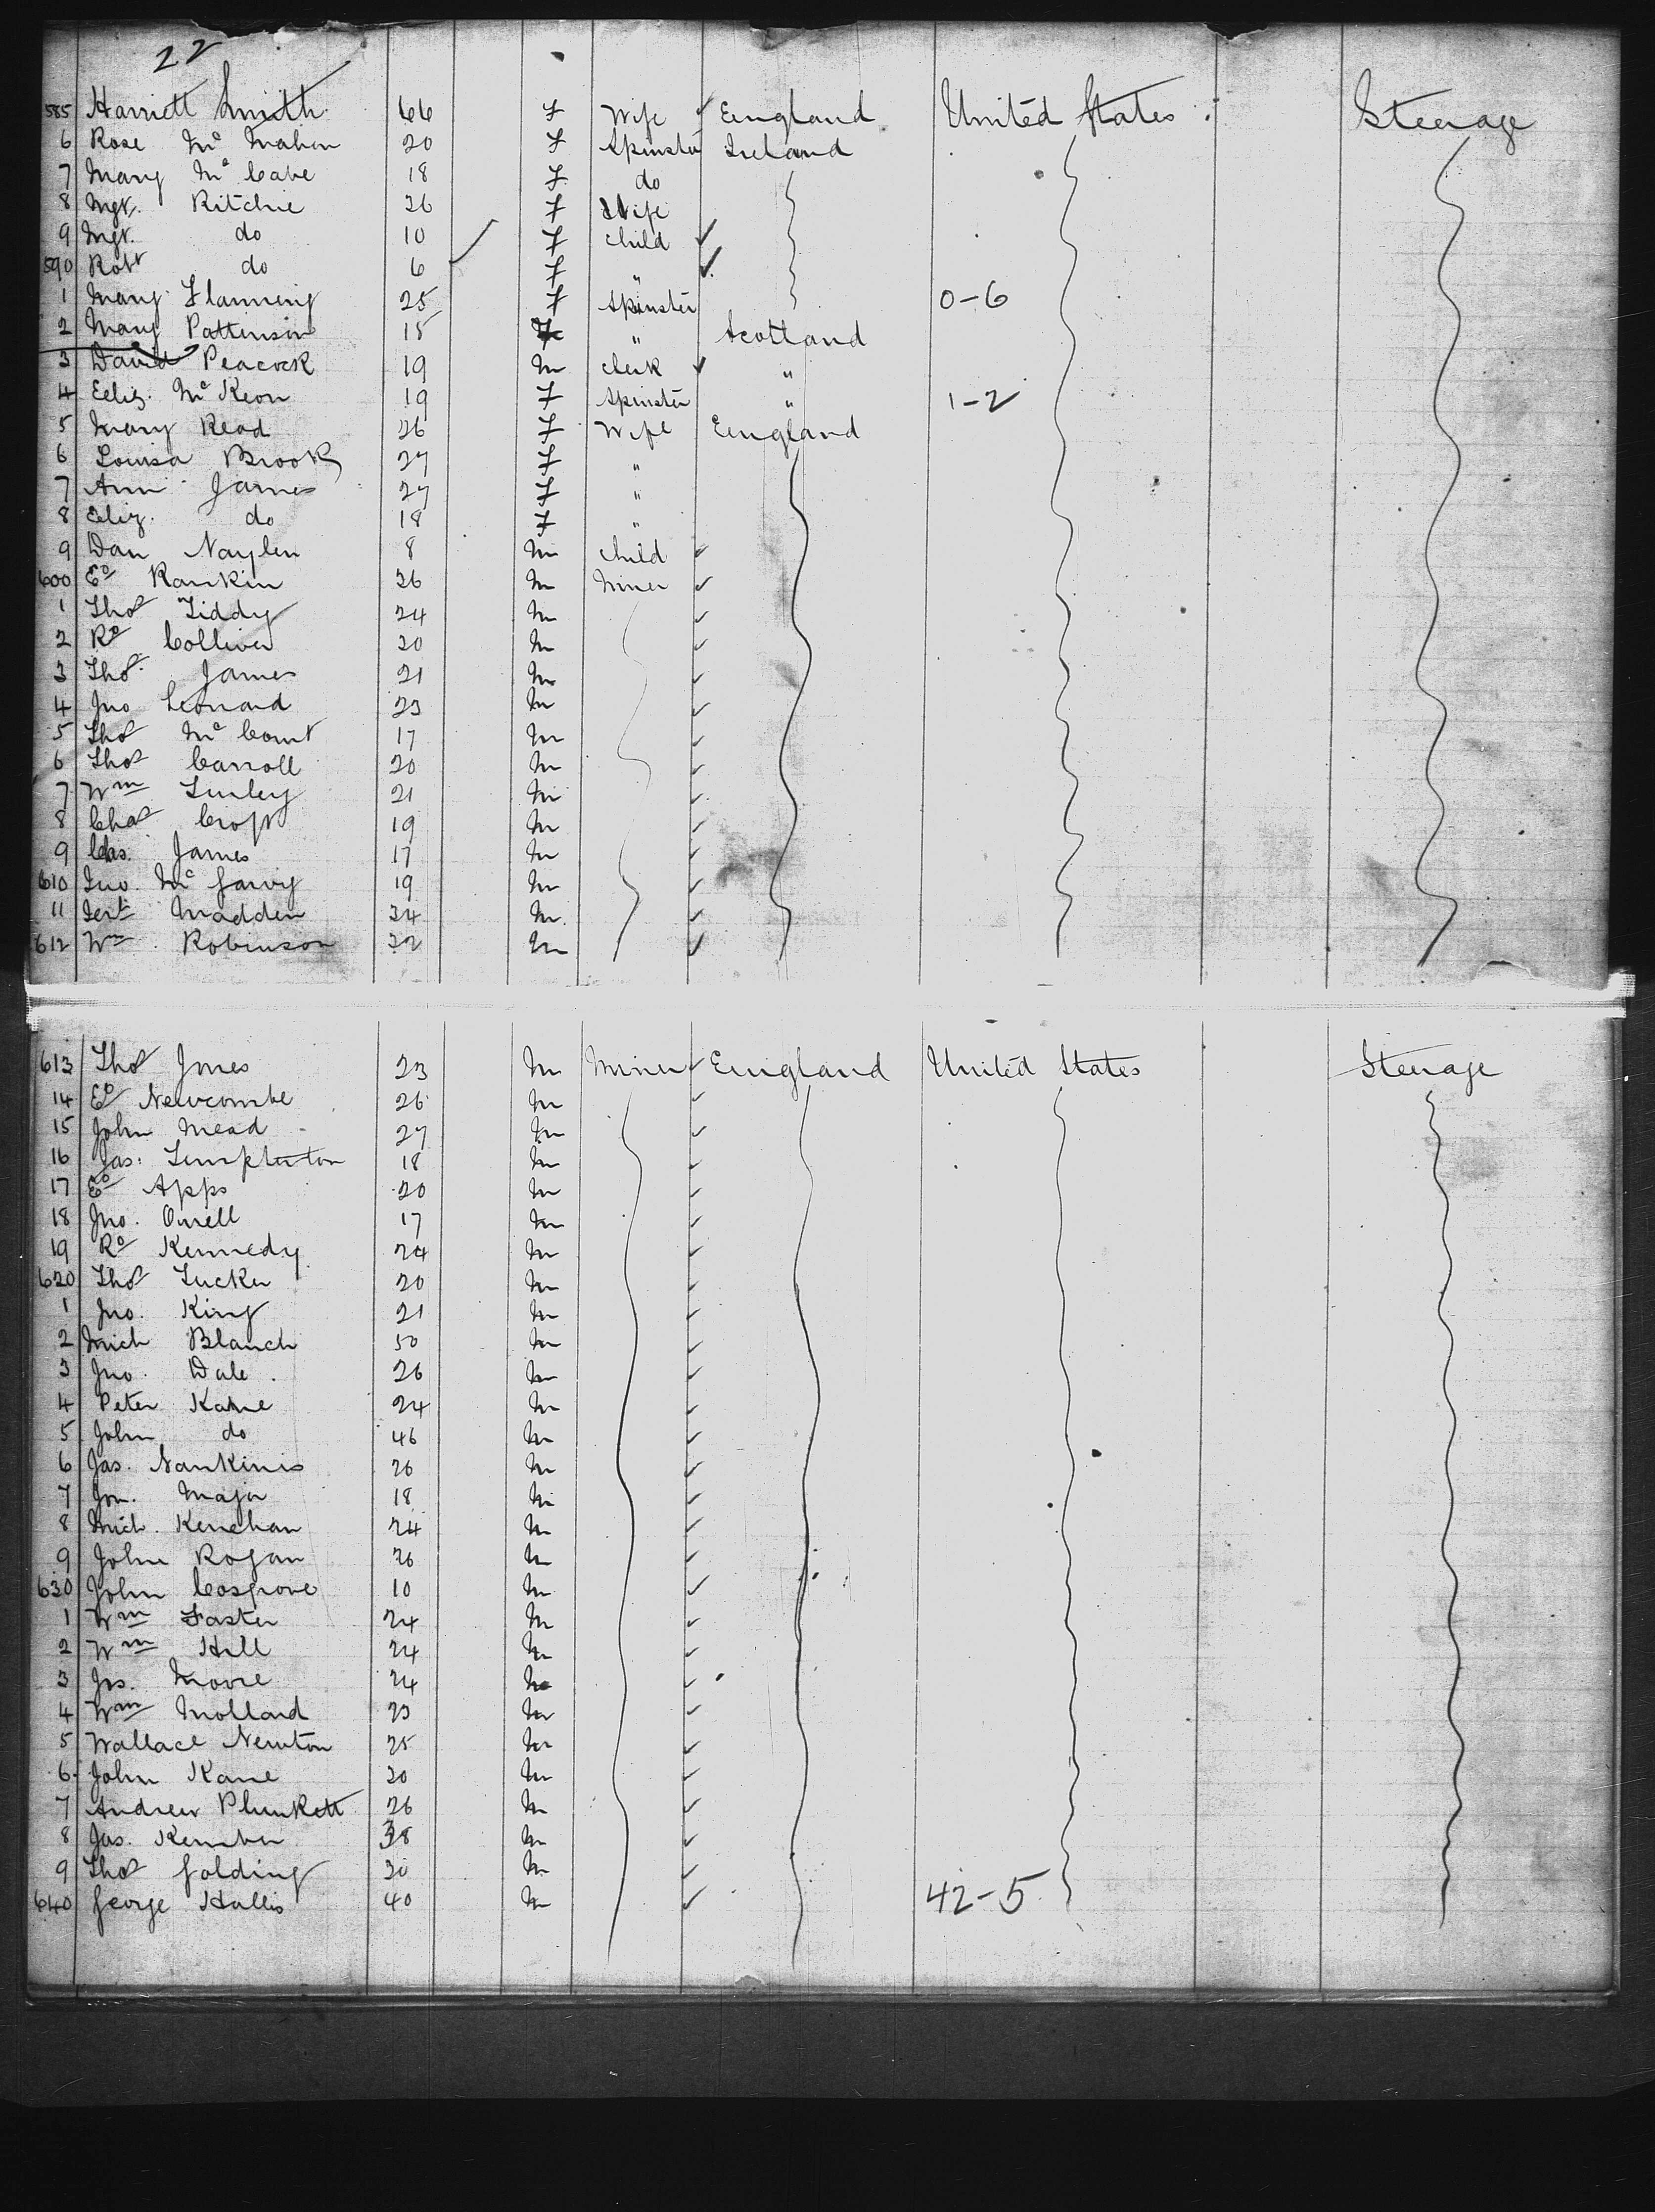 22
585 Harriett Smith 66 F Wife ✓ England United States Steerage
6 Rose Mc Mahon 20 F Spinster Ireland
7 Mary Mc Cabe 18 F do
8 Mgt. Ritchie 26 F Wife
9 Mgt. do 10 F child ✓
590 Robt do 6 ✓ F " ✓
1 Mary Flanning 25 F Spinster 0-6
2 Mary Pattinson 18 F " Scotland
3 David Peacock 19 m clerk ✓ "
4 Eliz. Mc Keon 19 F Spinster " 1-2
5 Mary Read 26 F Wife England
6 Louisa Brook 27 F "
7 Ann James 27 F "
8 Eliz. do 18 F "
9 Dan 8 m child ✓
600 Ed Rankin 26 m miner ✓
1 Thos Tiddy 24 m ✓
2 Rd Colliver 20 m ✓
3 Thos James 21 m ✓
4 Jno Leonard 23 m ✓
5 Thos Mc Court 17 m ✓
6 Thos Carroll 20 m ✓
7 Wm 21 m ✓
8 Chas Croft 19 m ✓
9 Chas. James 17 m ✓
610 Jno. Mc Garvy 19 m ✓
11 Madden 34 m ✓
612 Wm Robinson 32 m ✓
613 Thos Jones 23 m miner ✓ England United States Steerage
14 Ed Newcombe 26 m ✓
15 John Mead 27 m ✓
16 Jas. 18 m ✓
17 Ed Apps 20 m ✓
18 Jno. 17 m ✓
19 Rd Kennedy 24 m ✓
620 Thos Tucker 20 m ✓
1 Jno. King 21 m ✓
2 Mich Blanch 50 m ✓
3 Jno. Dale 26 m ✓
4 Peter Kane 24 m ✓
5 John do 46 m ✓
6 Jas. 26 m ✓
7 Jon. Major 18 m ✓
8 Mich. Kenehan 24 m ✓
9 John Rogan 26 m ✓
630 John Cosgrove 10 m ✓
1 Wm Faster 24 m ✓
2 Wm Hill 24 m ✓
3 Jas. Moore 24 m ✓
4 Wm Molland 23 m ✓
5 Wallace Newton 25 m ✓
6 John Kane 20 m ✓
7 Andrew Plunkett 26 m ✓
8 Jas. Kember 38 m ✓
9 Thos Golding 30 m ✓
640 George Hallis 40 m ✓ 42-5